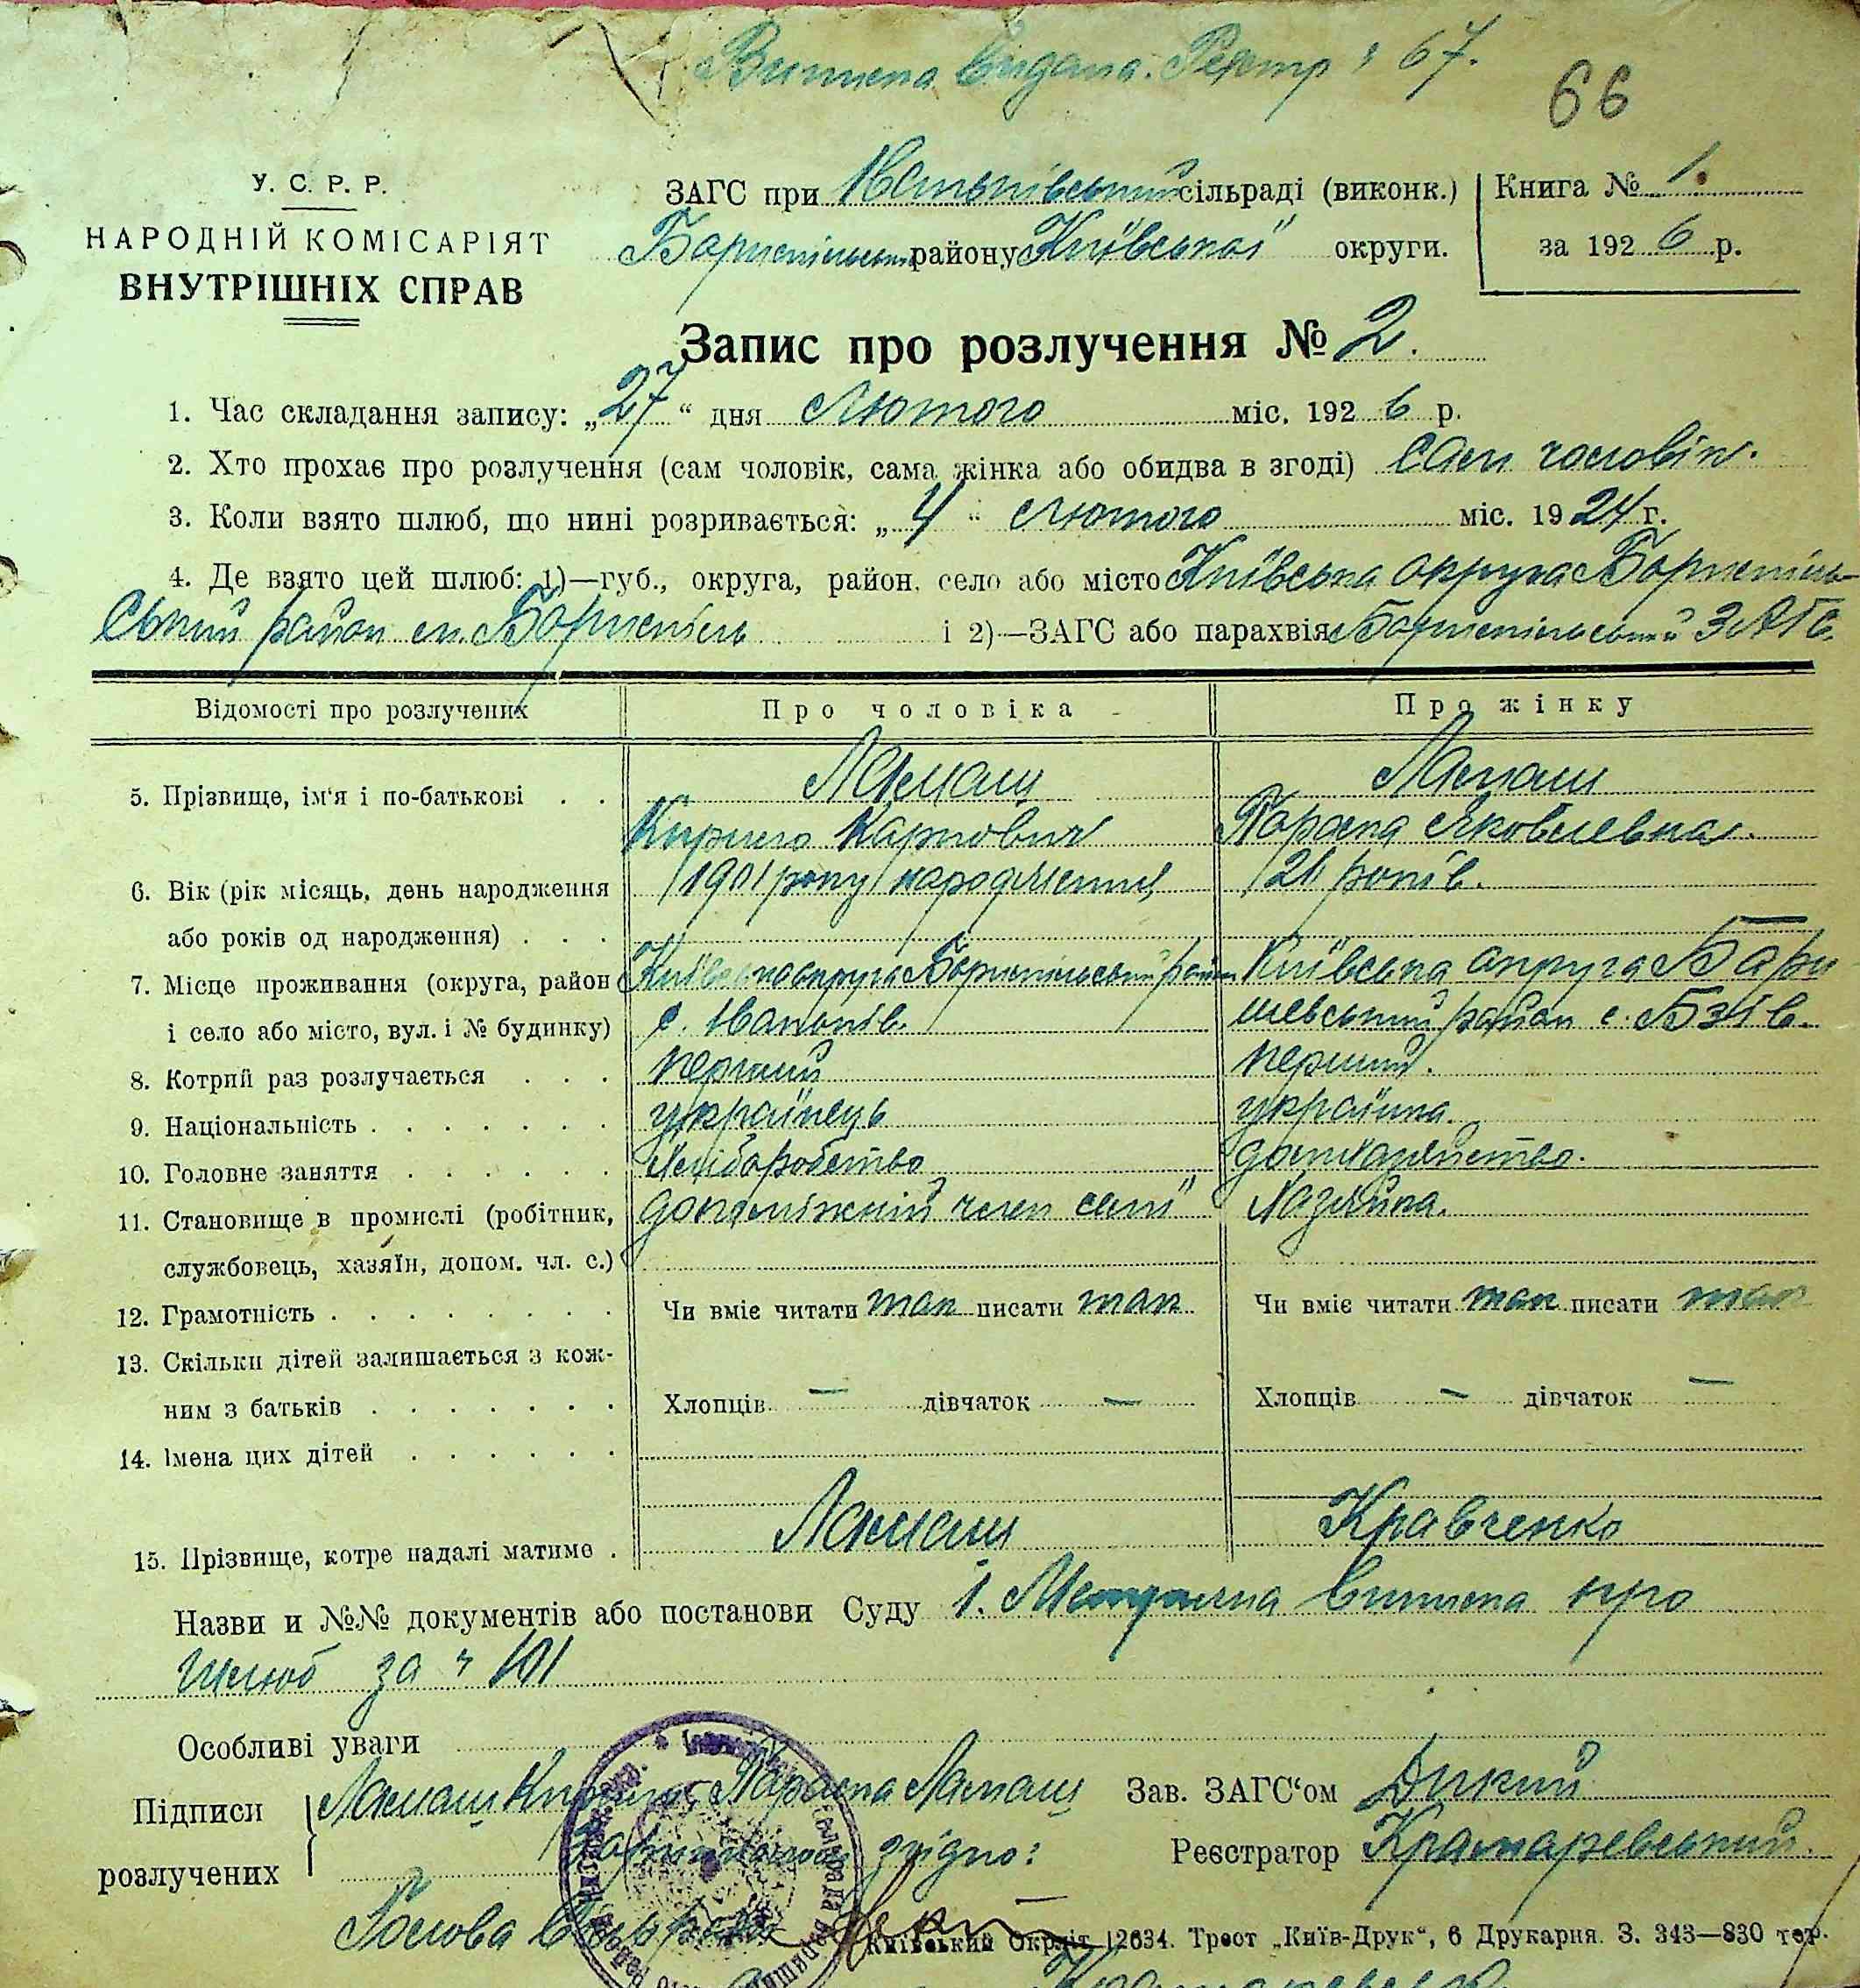 Виписка видана. Реєстр ч 67.
66
У. С. Р. Р.
НАРОДНІЙ КОМІСАРІЯТ
ВНУТРІШНІХ СПРАВ
ЗАГС при сільраді (виконк.)
Бориспільськ району Київської округи.
Книга № 1.
за 1926 р.
Запис про розлучення № 2.
1. Час складання запису: „27“ дня Лютого міс. 1926 р.
2. Хто прохає про розлучення (сам чоловік, сама жінка або обидва в згоді) Сам чоловік.
3. Коли взято шлюб, що нині розривається: „4“ Лютого міс. 1924 г.
4. Де взято цей шлюб: 1)—губ., округа, район, село або місто Київська округа Бориспіль-
ський район м. Бориспіль і 2)—ЗАГС або парахвія Бориспільський ЗАГС.
Відомості про розлучених
Про чоловіка
Про жінку
5. Прізвище, ім‘я і по-батькові . .
Ламаш
Кирило Карпович
Ламаш
Параска Яковлевна.
6. Вік (рік місяць, день народження
або років од народження) . . .
1901 року народження
21 років.
7. Місце проживання (округа, район
і село або місто, вул. і № будинку)
Київська округа Бориспільський район
с.
Київська округа Бари
шевський район с. Бзів.
8. Котрий раз розлучається . . .
перший
перший.
9. Національність . . . . . . .
українець
українка.
10. Головне заняття . . . . . .
Хліборобство
домхазяйство.
11. Становище в промислі (робітник,
службовець, хазяїн, допом. чл. с.)
допоміжний член сем'ї
Хазяйка.
12. Грамотність . . . . . . . .
Чи вміє читати так писати так
Чи вміє читати так писати так
13. Скільки дітей залишається з кож-
ним з батьків . . . . . . .
Хлопців — дівчаток —
Хлопців — дівчаток —
14. Імена цих дітей . . . . . .
15. Прізвище, котре надалі матиме .
Ламаш
Кравченко
Назви и №№ документів або постанови Суду 1. Метрична виписка про
шлюб за ч 101
Особливі уваги
Підписи
розлучених
Ламаш Кирило, Параска Ламаш
згідно:
Зав. ЗАГС‘ом Дикий
Реєстратор Крамаревський.
Голова
Київський Окрліт 12634. Трест „Київ-Друк“, 6 Друкарня. З. 343—830 тор.